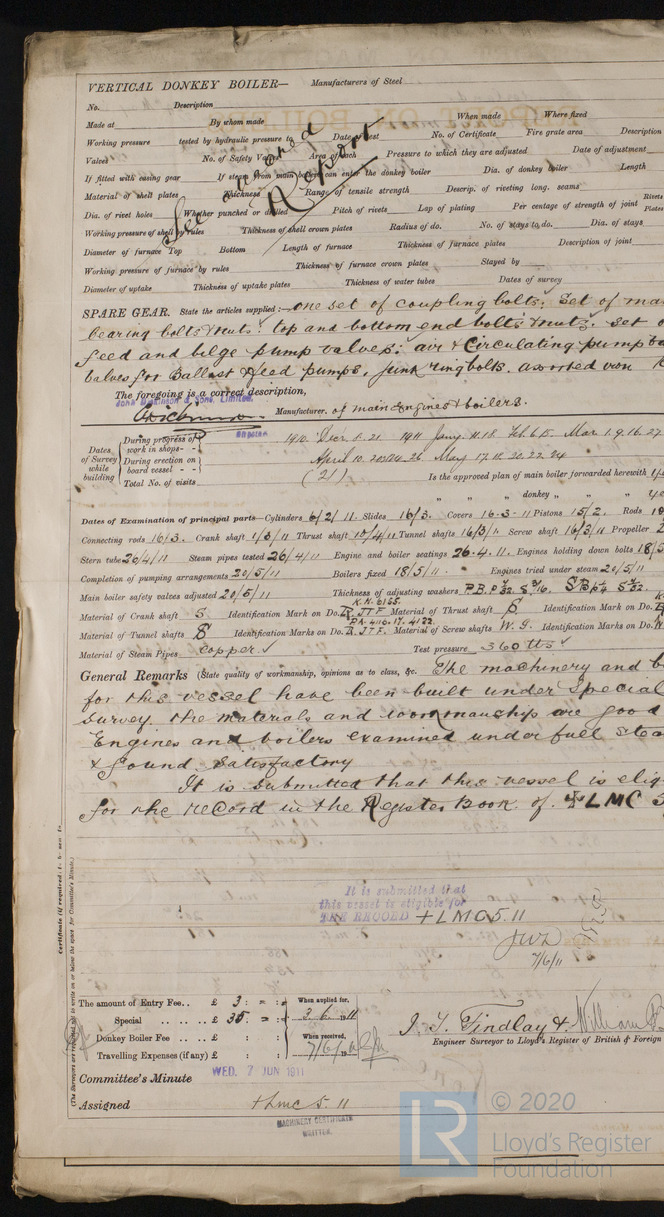 VERTICAL DONKEY BOILER— Manufacturers of Steel
No. Description
Made at By whom made When made Where fixed
Working pressure tested by hydraulic pressure to Date of test No. of Certificate Fire grate area Description
Valves No. of Safety Valves Area of each Pressure to which they are adjusted Date of adjustment
If fitted with easing gear If steam from main boilers can enter the donkey boiler Dia. of donkey boiler Length
Material of shell plates Thickness Range of tensile strength Descrip. of riveting long. seams
Dia. of rivet holes Whether punched or drilled Pitch of rivets Lap of plating Per centage of strength of joint Rivets Plates
Working pressure of shell by rules Thickness of shell crown plates Radius of do. No. of stays to do. Dia. of stays
Diameter of furnace Top Bottom Length of furnace Thickness of furnace plates Description of joint
Working pressure of furnace by rules Thickness of furnace crown plates Stayed by
Diameter of uptake Thickness of uptake plates Thickness of water tubes Dates of survey
See Report
SPARE GEAR. State the articles supplied:— one set of coupling bolts. Set of
bearing bolts & nuts. top and bottom end bolts & nuts. Set
feed and bilge pump valves; air & Circulating pump
valves for Ballast & feed pumps, junk ring bolts. assorted iron
The foregoing is a correct description,
John Dickinson & Sons, Limited.
Manufacturer. of main engines & boilers.
Dates of Survey while building
During progress of work in shops - - 1910. Dec. 8. 21 1911 Jany. 11. 18 Feb. 6. 15. Mar. 1. 9. 16. 27
During erection on board vessel - - April 10. 20. 24. 26 May 17. 18. 20. 22. 24
Total No. of visits (21) Is the approved plan of main boiler forwarded herewith
" " " donkey " " "
Dates of Examination of principal parts—Cylinders 6/2/11. Slides 16/3. Covers 16.3.11 Pistons 15/2. Rods
Connecting rods 16/3. Crank shaft 1/3/11 Thrust shaft 10/4/11 Tunnel shafts 16/3/11 Screw shaft 16/3/11 Propeller
Stern tube 20/4/11 Steam pipes tested 26/4/11 Engine and boiler seatings 26.4.11. Engines holding down bolts 18/5
Completion of pumping arrangements 20/5/11 Boilers fixed 18/5/11 Engines tried under steam 20/5/11
Main boiler safety valves adjusted 20/5/11 Thickness of adjusting washers
Material of Crank shaft S Identification Mark on Do. Material of Thrust shaft S Identification Mark on Do.
Material of Tunnel shafts S Identification Marks on Do. Material of Screw shafts Identification Marks on Do.
Material of Steam Pipes Copper Test pressure 360 lbs
General Remarks (State quality of workmanship, opinions as to class, &c. The machinery and
for this vessel have been built under Special
survey. the materials and workmanship are good
Engines and boilers examined under full
& found satisfactory
It is submitted that this vessel is
for the record in the Register Book of. + LMC 5
Certificate (if required) to be sent to
(The Surveyors are requested not to write on or below the space for Committee's Minute.)
It is submitted that
this vessel is eligible for
THE RECORD + LMC 5. 11
7/6/11
The amount of Entry Fee.. £ 3 : = : When applied for,
Special .. .. .. £ 35. = : 3. 6. 1911
Donkey Boiler Fee .. .. £ : : When received,
Travelling Expenses (if any) £ : : 7/6/1911
J. T. Findlay & William
Engineer Surveyor to Lloyd's Register of British & Foreign
WED. 7 JUN 1911
Committee's Minute
Assigned + Lmc 5. 11
MACHINERY CERTIFICATE
WRITTEN.
LR © 2020
Lloyd's Register
Foundation